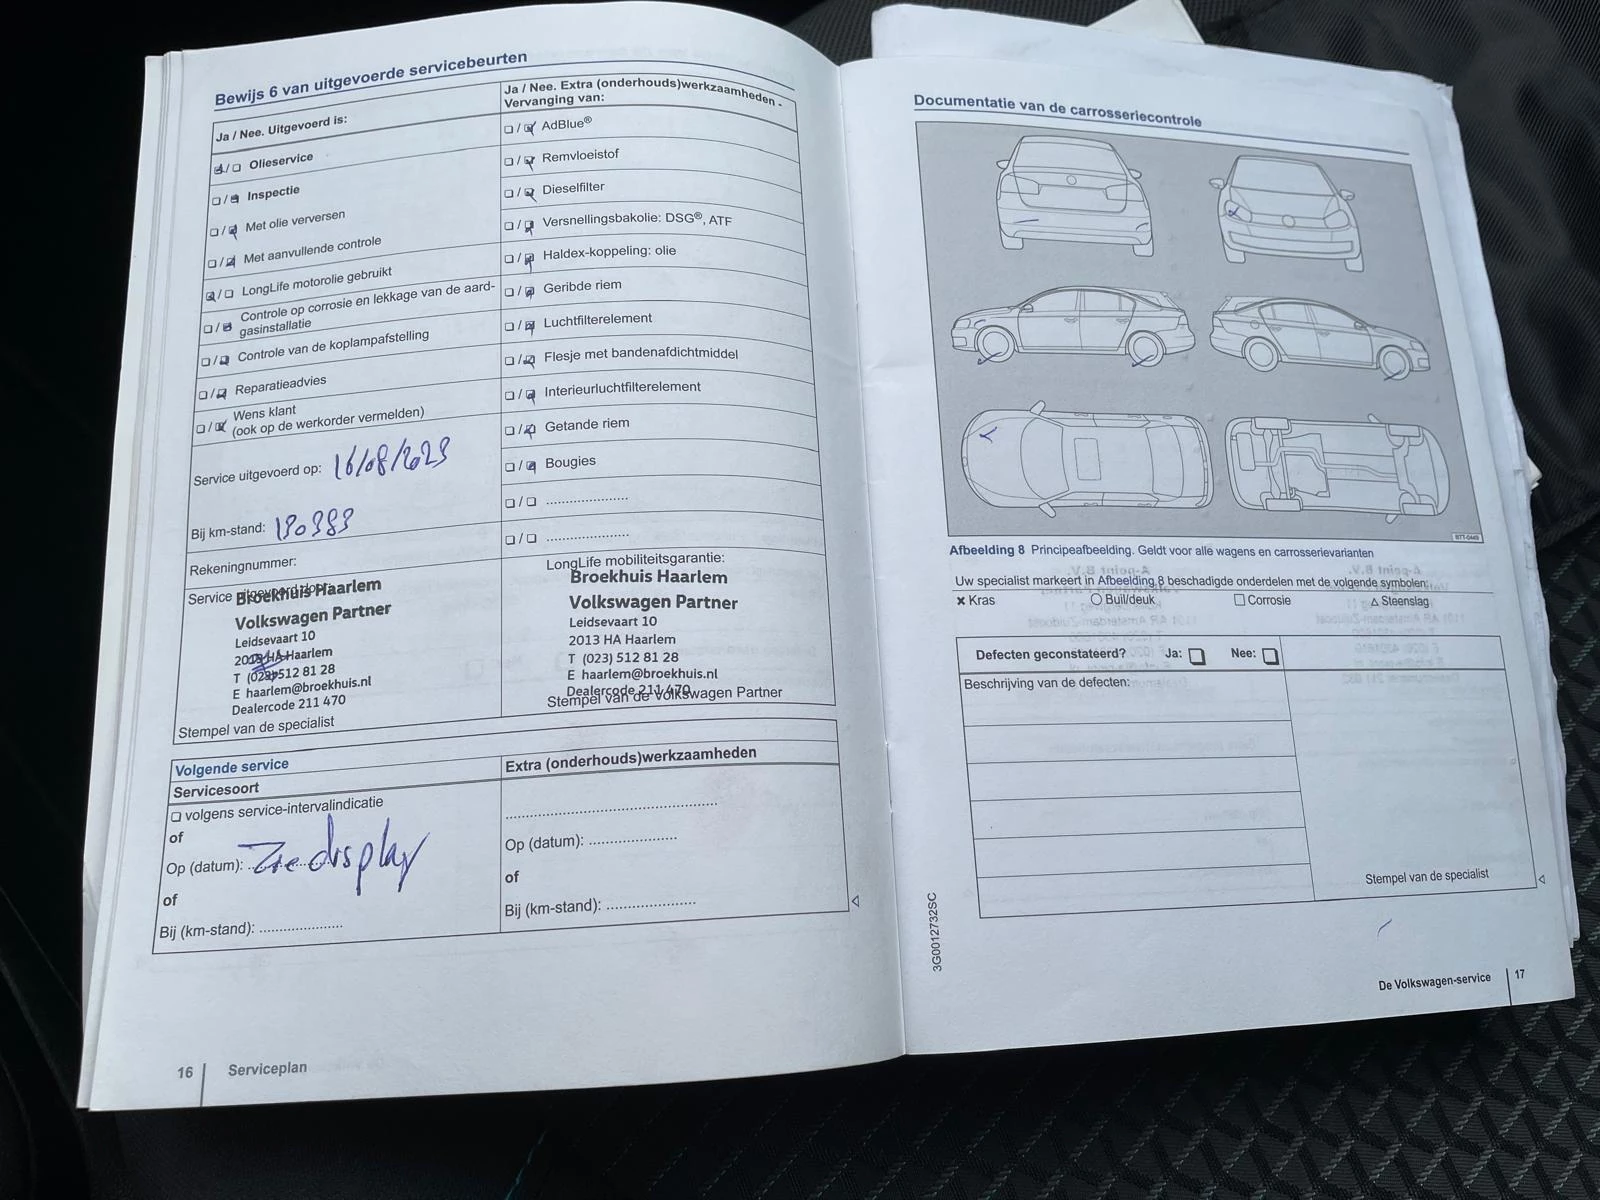 Bewijs 6 van uitgevoerde servicebeurten
Ja / Nee. Uitgevoerd is:
Olieservice
Inspectie
Met olie verversen
Met aanvullende controle
LongLife motorolie gebruikt
Controle op corrosie en lekkage van de aard-
gasinstallatie
Controle van de koplampafstelling
Reparatieadvies
Wens klant
(ook op de werkorder vermelden)
Service uitgevoerd op: 16/08/2023
Bij km-stand: 130383
Rekeningnummer:
Service
Broekhuis Haarlem
Volkswagen Partner
Leidsevaart 10
2013 HA Haarlem
T (023) 512 81 28
E haarlem@broekhuis.nl
Dealercode 211 470
Stempel van de specialist
Ja / Nee. Extra (onderhouds)werkzaamheden -
Vervanging van:
AdBlue®
Remvloeistof
Dieselfilter
Versnellingsbakolie: DSG®, ATF
Haldex-koppeling: olie
Geribde riem
Luchtfilterelement
Flesje met bandenafdichtmiddel
Interieurluchtfilterelement
Getande riem
Bougies
LongLife mobiliteitsgarantie:
Broekhuis Haarlem
Volkswagen Partner
Leidsevaart 10
2013 HA Haarlem
T (023) 512 81 28
E haarlem@broekhuis.nl
Dealercode 211 470
Stempel van de Volkswagen Partner
Volgende service
Servicesoort
volgens service-intervalindicatie
of
Op (datum): Zie display
of
Bij (km-stand):
Extra (onderhouds)werkzaamheden
Op (datum):
of
Bij (km-stand):
16 Serviceplan
Documentatie van de carrosseriecontrole
B7T-0449
Afbeelding 8 Principeafbeelding. Geldt voor alle wagens en carrosserievarianten
Uw specialist markeert in Afbeelding 8 beschadigde onderdelen met de volgende symbolen:
Kras Buil/deuk Corrosie Steenslag
Defecten geconstateerd? Ja: Nee:
Beschrijving van de defecten:
Stempel van de specialist
3G0012732SC
De Volkswagen-service 17